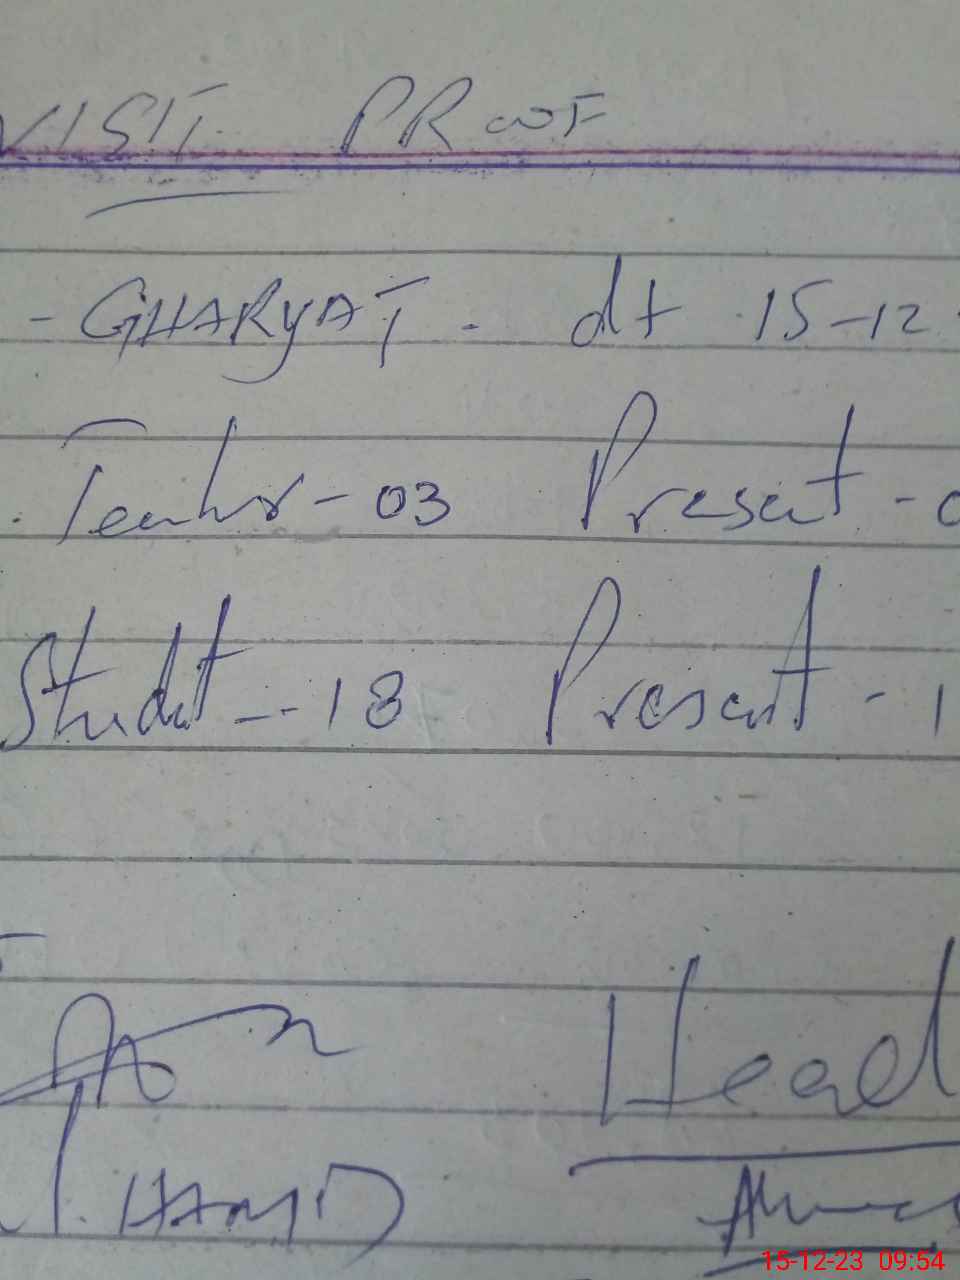 VISIT PROOF
- GHARYAT. dt 15-12
Teacher - 03 Present -
Student - 18 Present - 1
Head
HAMID
15-12-23 09:54